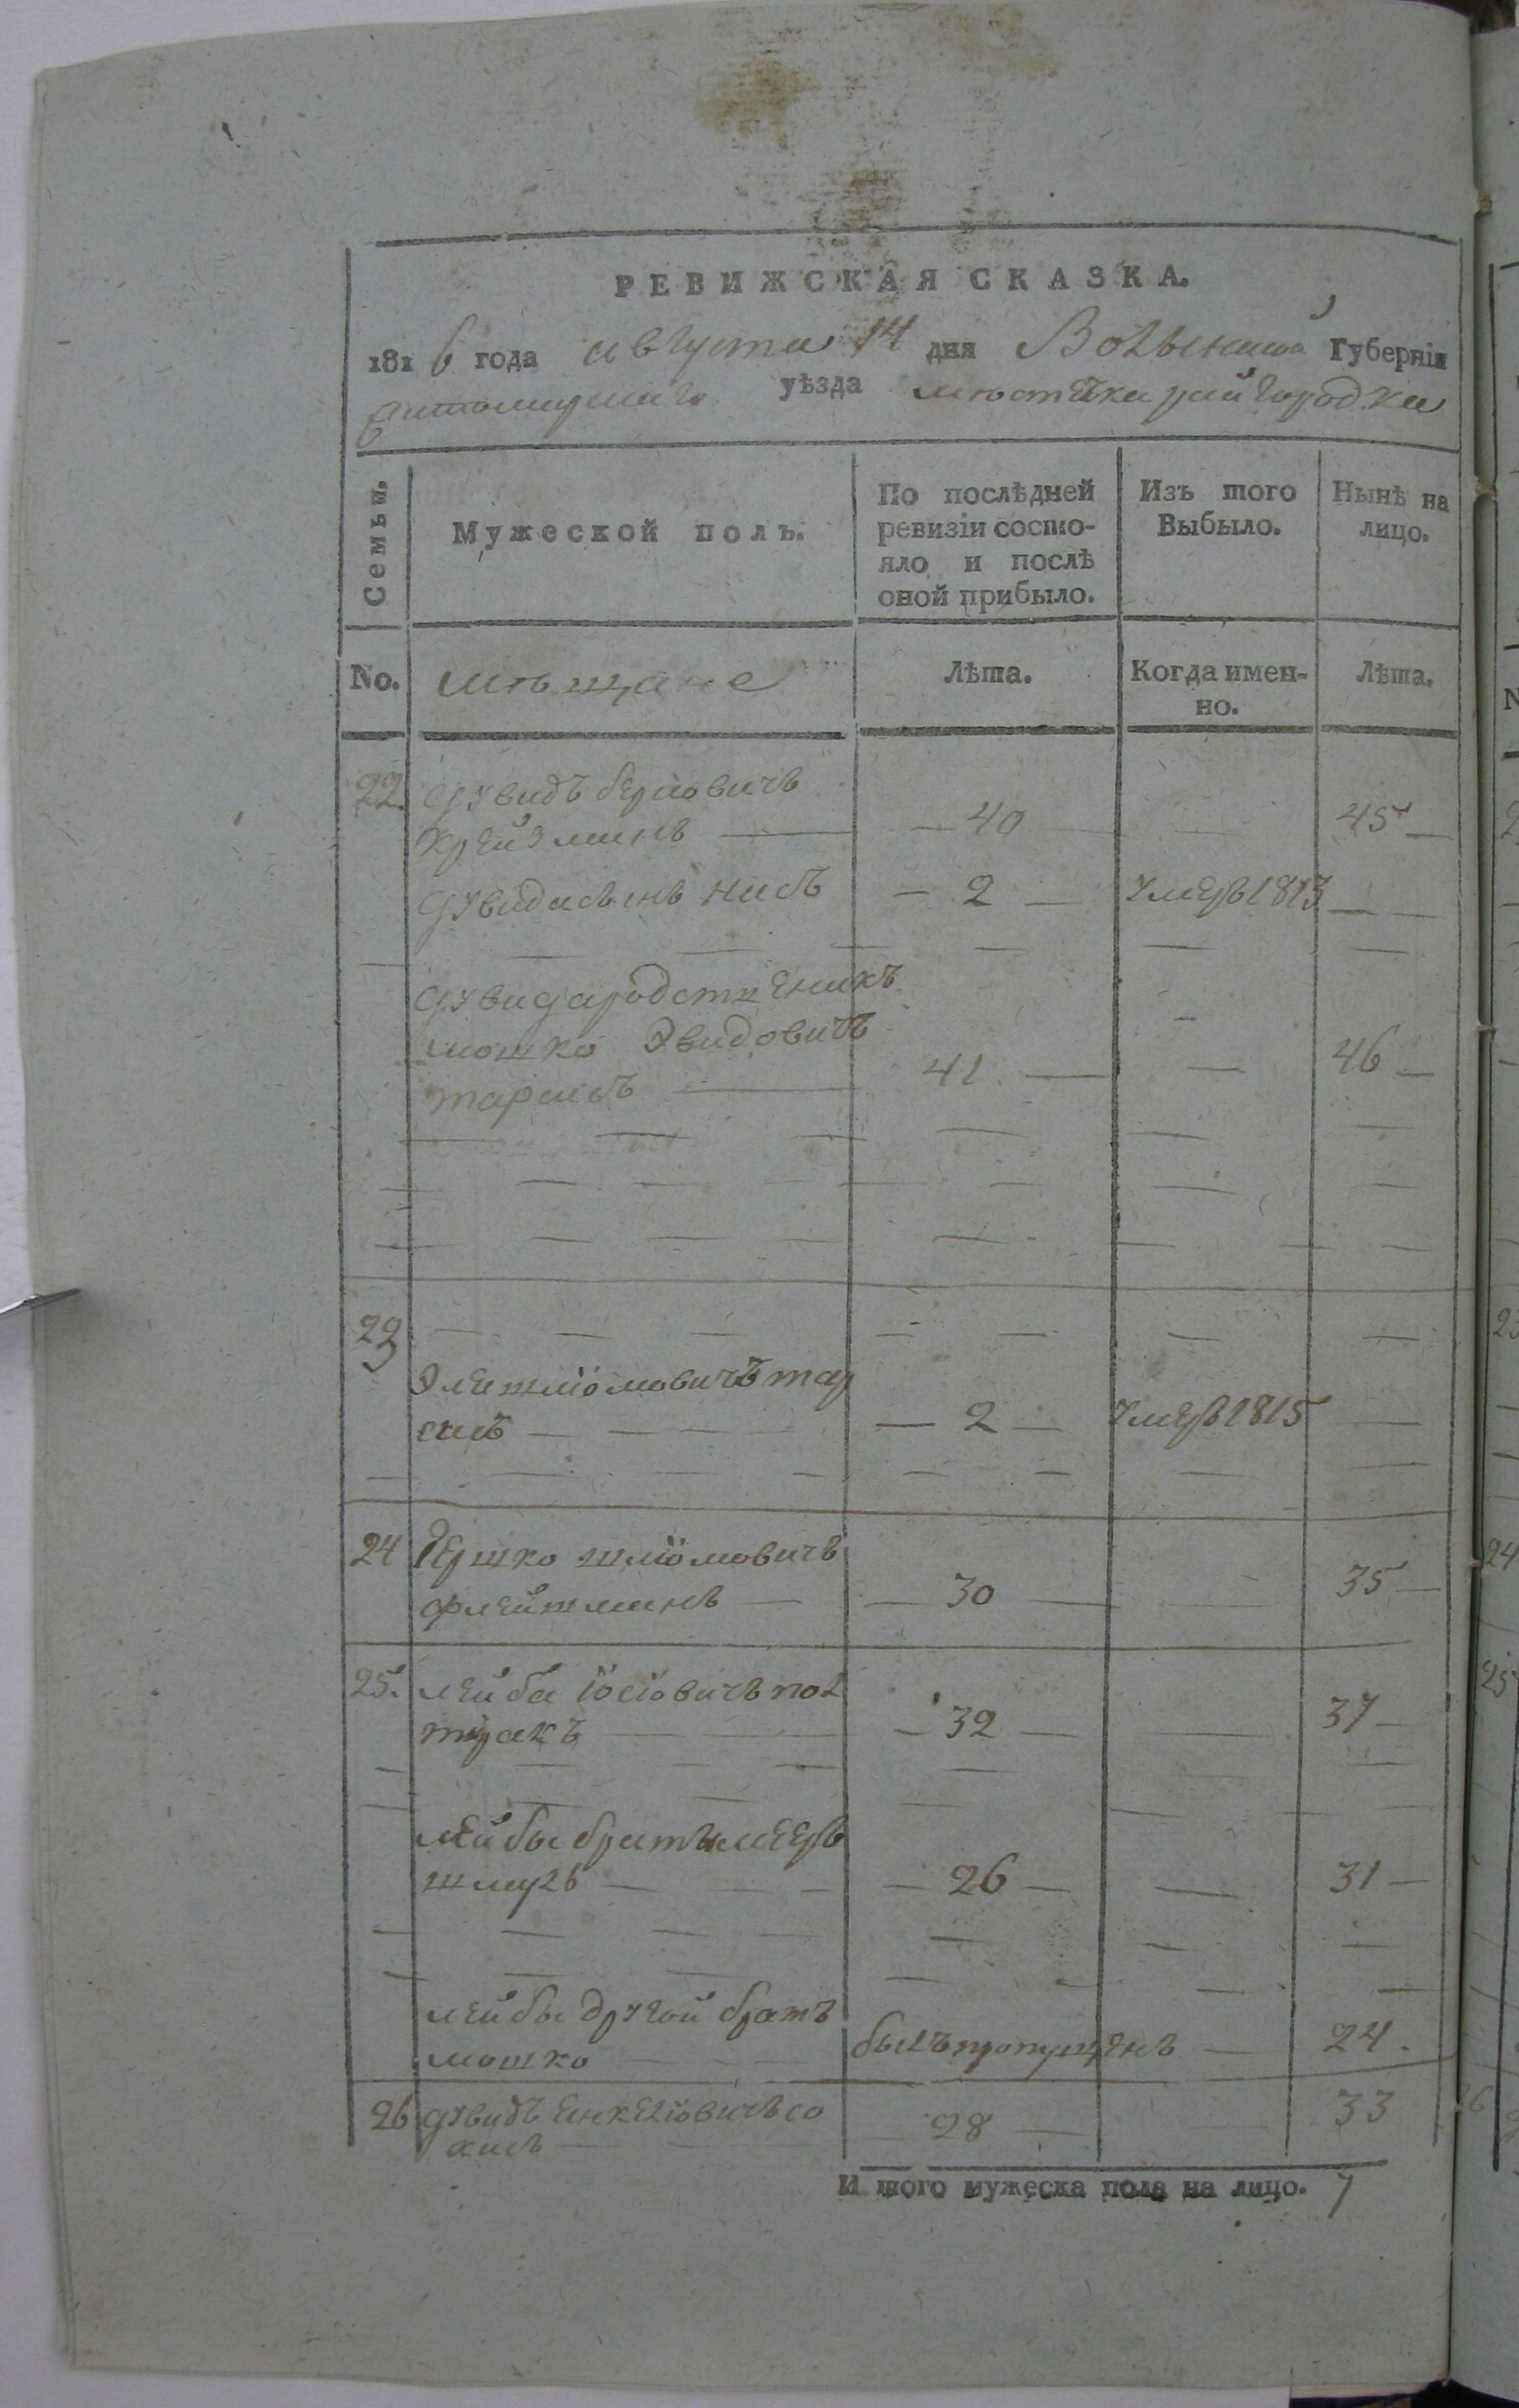 РЕВИЖСКАЯ СКАЗКА.
1816 года августа 14 дня Волынской Губерніи
житомирскаго уѣзда мѣстечка райгородка
Семьи. Мужеской полъ. По послѣдней ревизіи состояло и послѣ оной прибыло. Изъ того Выбыло. Нынѣ на лицо.
No. мѣщане Лѣта. Когда именно. Лѣта.
22 Дувидъ берковичъ
крейзманъ — 40 45
Дувида сынъ — 2 — Умеръ 1813
Дувида родственикъ
мошко
41 46
23
шліомовичъ
— 2 — Умеръ 1815
24 Гершко шліомовичъ
флейшманъ — 30 35
25. лейба іосіовичъ пол
торакъ — 32 — 37
лейбы братъ мееръ
шмуль — 26 — 31
лейбы другой братъ
мошко былъ пропущенъ — 24.
26 Дувидъ
28 33
И того мужеска пола на лицо. 7